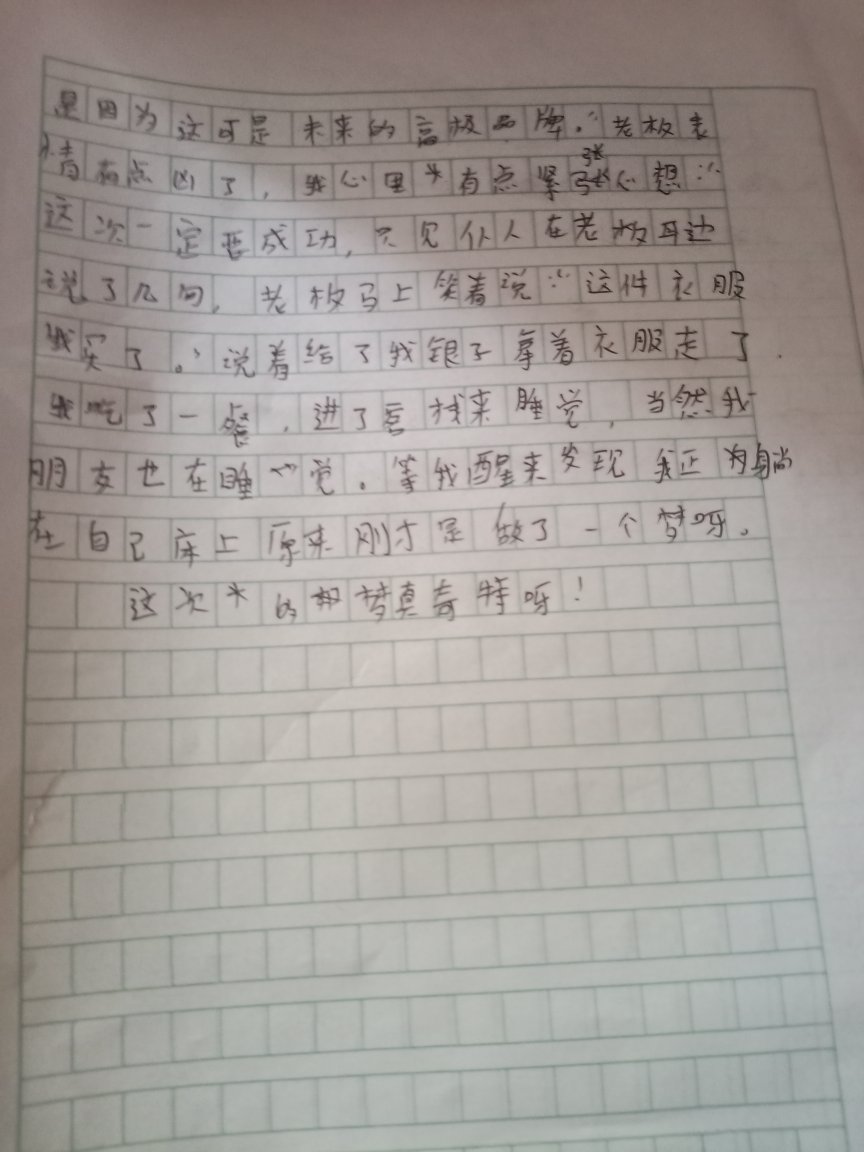 是因为这可是未来的高极品牌。”老板表
情有点凶了，我心里有点紧张心想：“
这次一定要成功，只见仆人在老板耳边
说了几句，老板马上笑着说：“这件衣服
我买了。”说着给了我银子拿着衣服走了.
我吃了一餐，进了客栈来睡觉，当然我
朋友也在睡觉。等我醒来发现我正
在自己床上原来刚才是做了一个梦呀。
这次的梦真奇特呀！